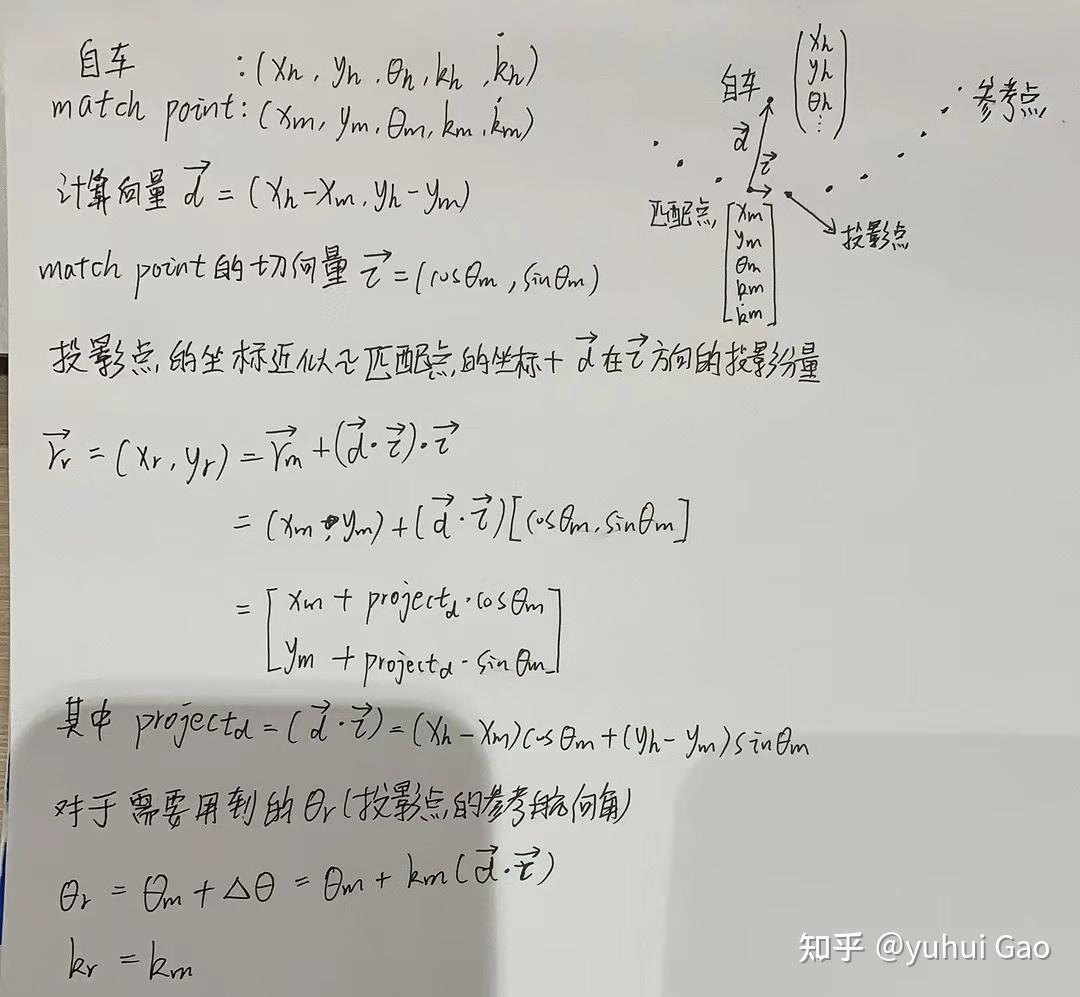 自车 : (xh, yh, θh, kh, k̇h)
match point: (xm, ym, θm, km, k̇m)
计算向量 d⃗ = (xh-xm, yh-ym)
match point的切向量 τ⃗ = (cosθm, sinθm)
自车
(xh
yh
θh
⋮)
d⃗
τ⃗
参考点
匹配点
[xm
ym
θm
km
k̇m]
投影点
投影点的坐标近似匹配点的坐标+ d⃗ 在 τ⃗ 方向的投影分量
r⃗r = (xr, yr) = r⃗m + (d⃗·τ⃗)·τ⃗
= (xm, ym) + (d⃗·τ⃗)[cosθm, sinθm]
= [xm + projectd·cosθm
ym + projectd·sinθm]
其中 projectd = (d⃗·τ⃗) = (xh-xm)cosθm + (yh-ym)sinθm
对于需要用到的θr(投影点的参考航向角)
θr = θm + Δθ = θm + km(d⃗·τ⃗)
kr = km
知乎 @yuhui Gao